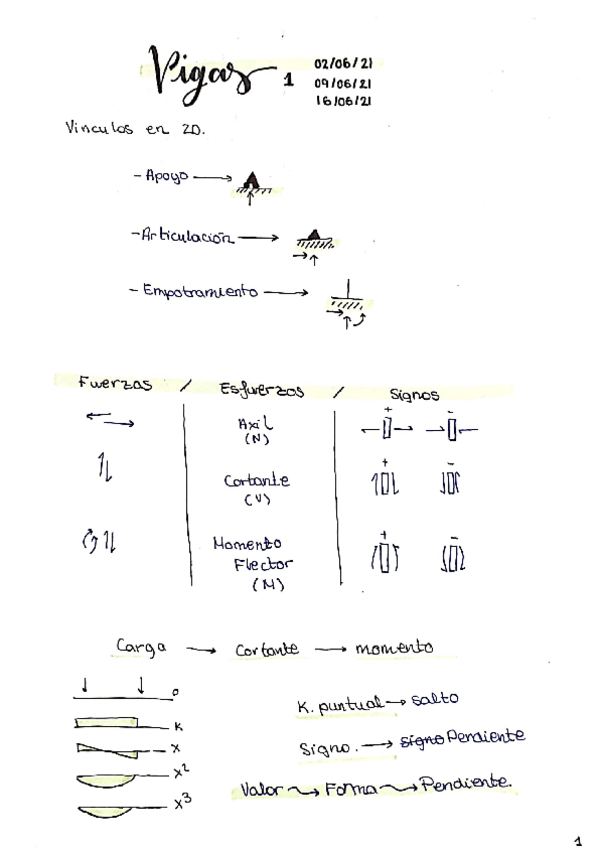 Vigas 1
02/06/21
09/06/21
16/06/21
Vinculos en 2D.
- Apoyo
- Articulación
- Empotramiento
Fuerzas / Esfuerzos / Signos
Axil
(N)
+ -
Cortante
(V)
+ -
Momento
Flector
(M)
+ -
Carga → Cortante → momento
0
K
X
X²
X³
K. puntual → salto
Signo. → signo Pendiente
Valor → Forma → Pendiente.
1